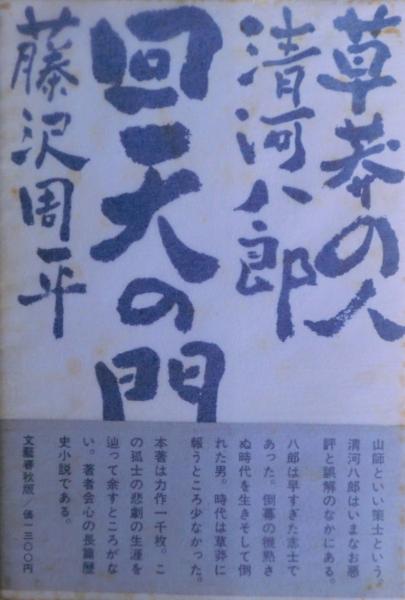 草莽の人
清河八郎
回天の門
藤沢周平
山師といい策士という。
清河八郎はいまなお悪
評と誤解のなかにある。
八郎は早すぎた志士で
あった。倒幕の機熟さ
ぬ時代を生きそして倒
れた男。時代は草莽に
報うところ少なかった。
本著は力作一千枚。こ
の孤士の悲劇の生涯を
辿って余すところがな
い。著者会心の長篇歴
史小説である。
文藝春秋版／価一三〇〇円